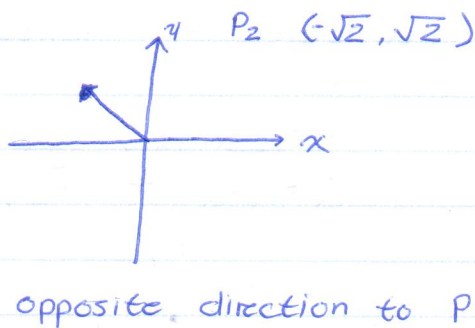 y P₂ (-√2, √2)
x
opposite direction to P